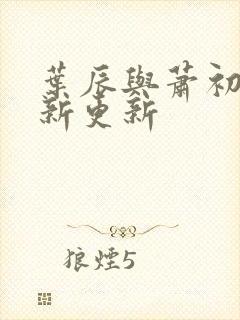 葉辰與蕭初
新更新
狼煙5